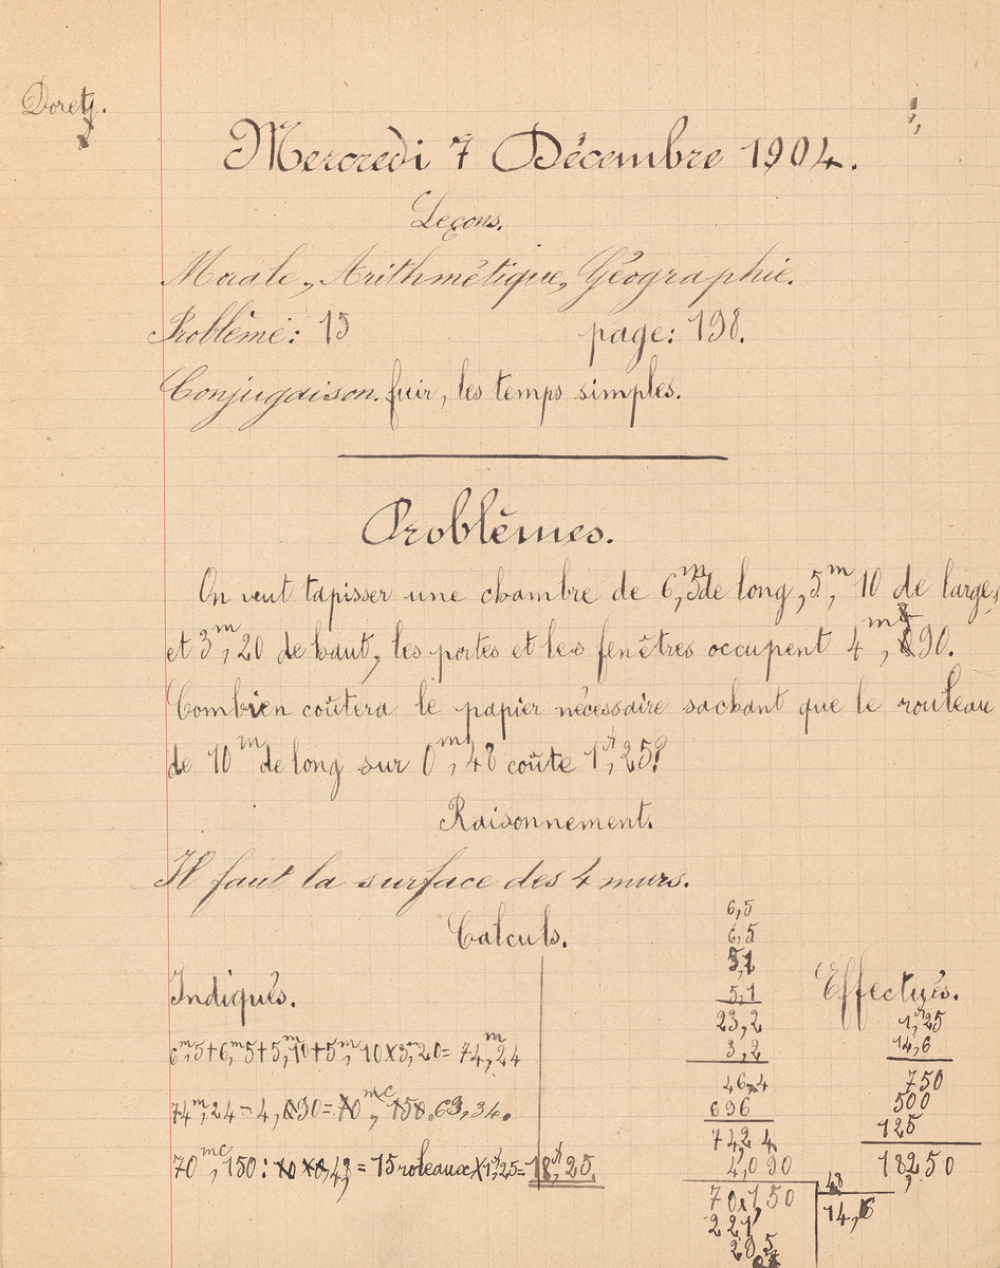 Doretz.
Mercredi 7 Décembre 1904.
Leçons.
Morale, Arithmétique, Géographie.
Problème: 15 page: 198.
Conjugaison. fuir, les temps simples.
Problèmes.
On veut tapisser une chambre de 6,m5 de long, 5,m 10 de large,
et 3m,20 de haut, les portes et les fenêtres occupent 4m, 90.
Combien coûtera le papier nécessaire sachant que le rouleau
de 10m de long sur 0m,48 coûte 1f,25?
Raisonnement.
Il faut la surface des 4 murs.
Calculs.
Indiqués.
6m,5+6m,5+5m,10+5m,10×3,20= 74m,24
74m,24-4,090=
70mc,150: 4,8=15 roleaux×1f,25=18f,25.
6,5
6,5
5,1
5,1
23,2
3,2
46,4
696
742 4
4,090
70,150
221
295
48
14,6
Effectués.
1f,25
14,6
750
500
125
18250